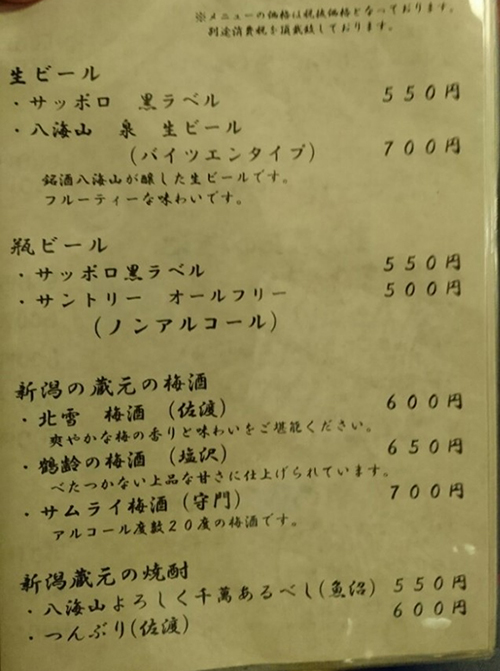 ※メニューの価格は税抜価格となっております。
別途消費税を頂戴致しております。
生ビール
・サッポロ 黒ラベル 550円
・八海山 泉 生ビール
(バイツエンタイプ) 700円
銘酒八海山が醸した生ビールです。
フルーティーな味わいです。
瓶ビール
・サッポロ黒ラベル 550円
・サントリー オールフリー 500円
(ノンアルコール)
新潟の蔵元の梅酒
・北雪 梅酒 (佐渡) 600円
爽やかな梅の香りと味わいをご堪能ください。
・鶴齢の梅酒 (塩沢) 650円
べたつかない上品な甘さに仕上げられています。
・サムライ梅酒 (守門) 700円
アルコール度数20度の梅酒です。
新潟蔵元の焼酎
・八海山よろしく千萬あるべし(魚沼) 550円
・つんぶり(佐渡) 600円